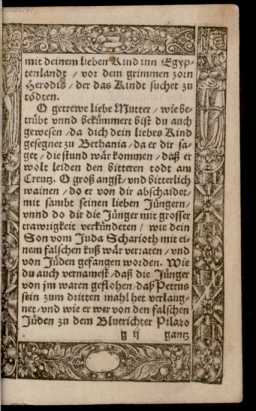 mit deinem lieben Kind inn Egyp-
tenlandt / vor dem grimmen zorn
Herodis / der das Kindt suchet zu
tödten.
O getrewe liebe Mutter / wie be-
trübt vnnd bekümmert bist du auch
gewesen / da dich dein liebes Kind
gesegnet zu Bethania / da er dir sa-
get / die stund wär kommen / daß er
wolt leiden den bitteren todt am
Creutz. O groß angst / vnd bitterlich
wainen / do er von dir abschaidet,
mit sambt seinen lieben Jüngern /
vnnd do dir die Jünger mit grosser
trawrigkeit verkündeten / wie dein
Son vom Juda Scharioth mit ei-
nem falschen kuß wär verraten / vnd
von Jüden gefangen worden. Wie
du auch vernamest / daß die Jünger
von jm waren geflohen / daß Petrus
sein zum dritten mahl het verlaug-
net / vnd wie er wer von den falschen
Jüden zu dem Blutrichter Pilato
g ij gantz